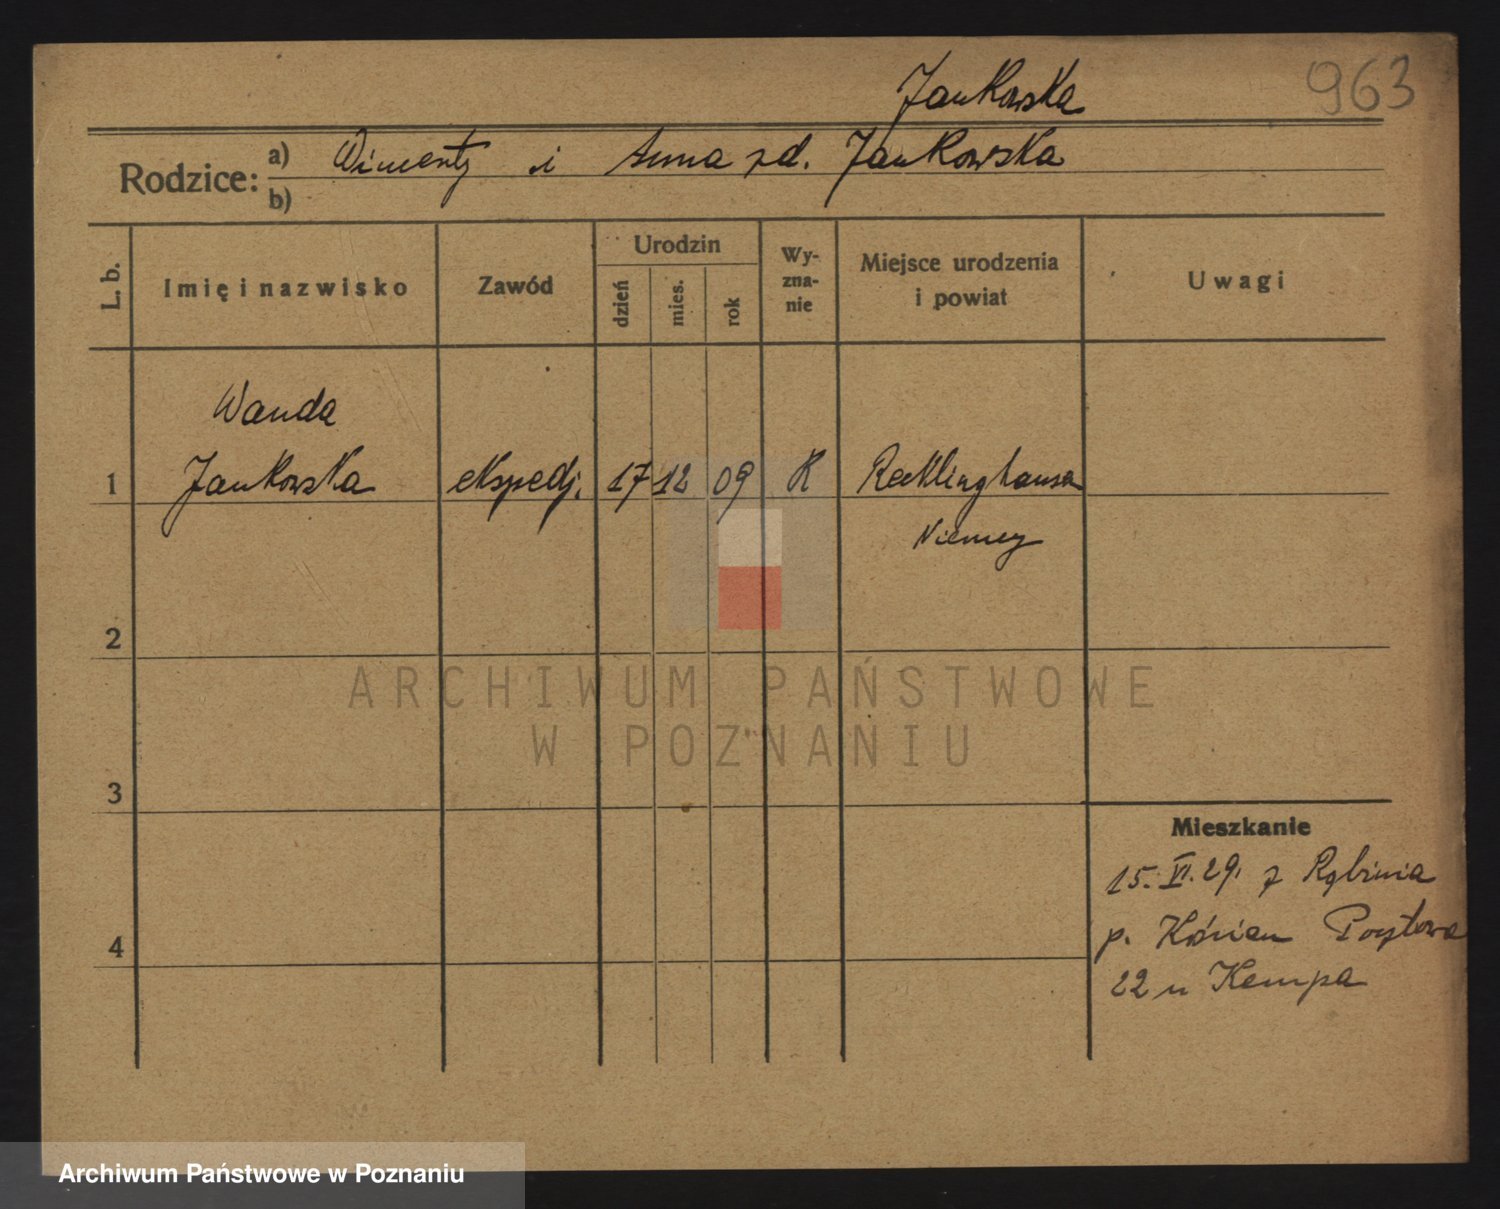 963
Jankowska
Rodzice:
a) Wincenty i Anna zd. Jankowska
b)
L. b.
Imię i nazwisko
Zawód
Urodzin
dzień
mies.
rok
Wy-
zna-
nie
Miejsce urodzenia
i powiat
Uwagi
Wanda
1 Jankowska ekspedj. 17 12 09 K Recklinghausen
Niemcy
2
3
4
Mieszkanie
15. VI. 29. z
p. Kościan Pocztowa
22 u Kempa
ARCHIWUM PAŃSTWOWE
W POZNANIU
Archiwum Państwowe w Poznaniu